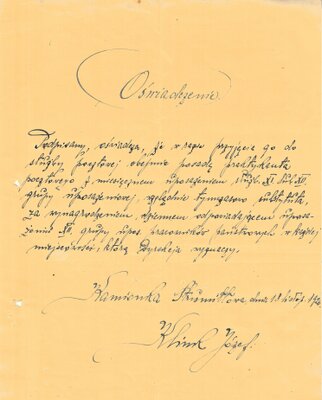 Oświadczenie.
Podpisany, oświadcza, że w razie przyjęcia go do
służby pocztowej obejmie posadę praktykanta
pocztowego z miesięcznem uposażeniem służb. XI lub XII
grupy uposażeniowej, względnie tymczasowo substytuta,
za wynagrodzeniem, dziennem odpowiadającem uposa-
żeniu grupy upos. pracowników państwowych w każdej
miejscowości, którą Dyrekcja wyznaczy.
Kamionka Strumiłowa, dnia 18
Klink Józef.